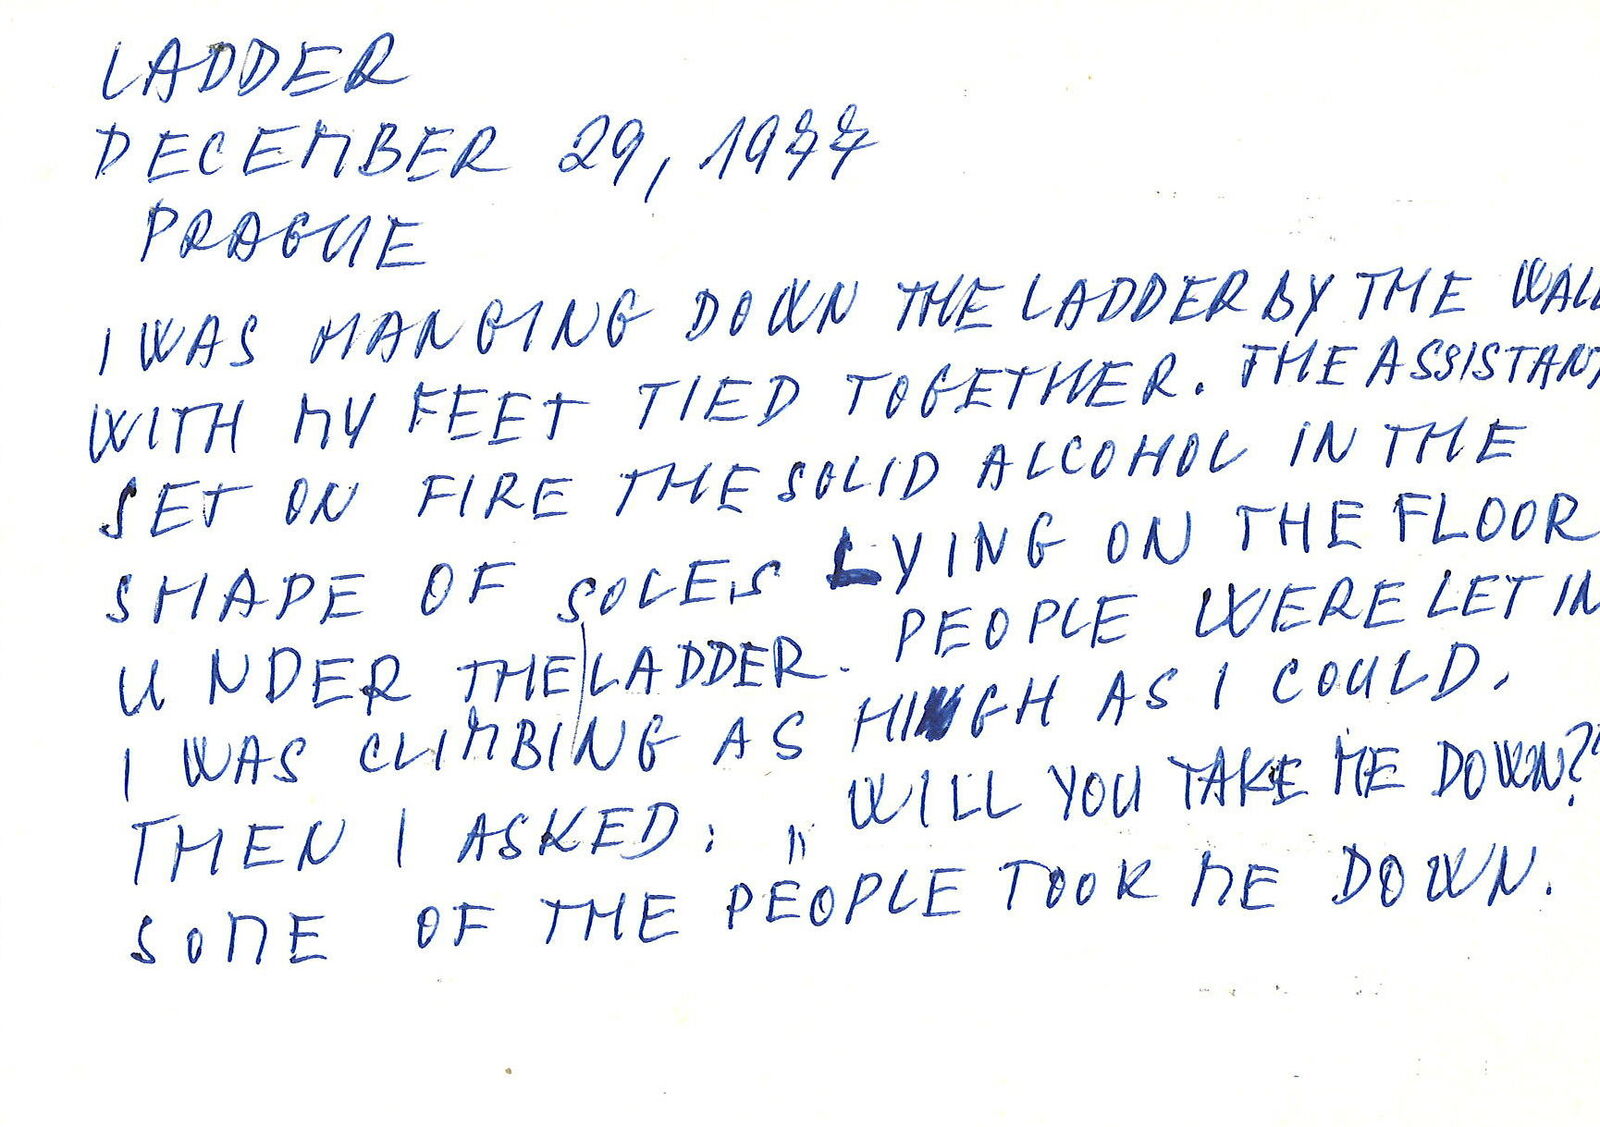 LADDER
DECEMBER 29, 1977
PRAGUE
I WAS HANGING DOWN THE LADDER BY THE WALL
WITH MY FEET TIED TOGETHER. THE ASSISTANT
SET ON FIRE THE SOLID ALCOHOL IN THE
SHAPE OF SOLES LYING ON THE FLOOR
UNDER THE LADDER. PEOPLE WERE LET IN
I WAS CLIMBING AS HIGH AS I COULD.
THEN I ASKED: „WILL YOU TAKE ME DOWN?"
SOME OF THE PEOPLE TOOK ME DOWN.